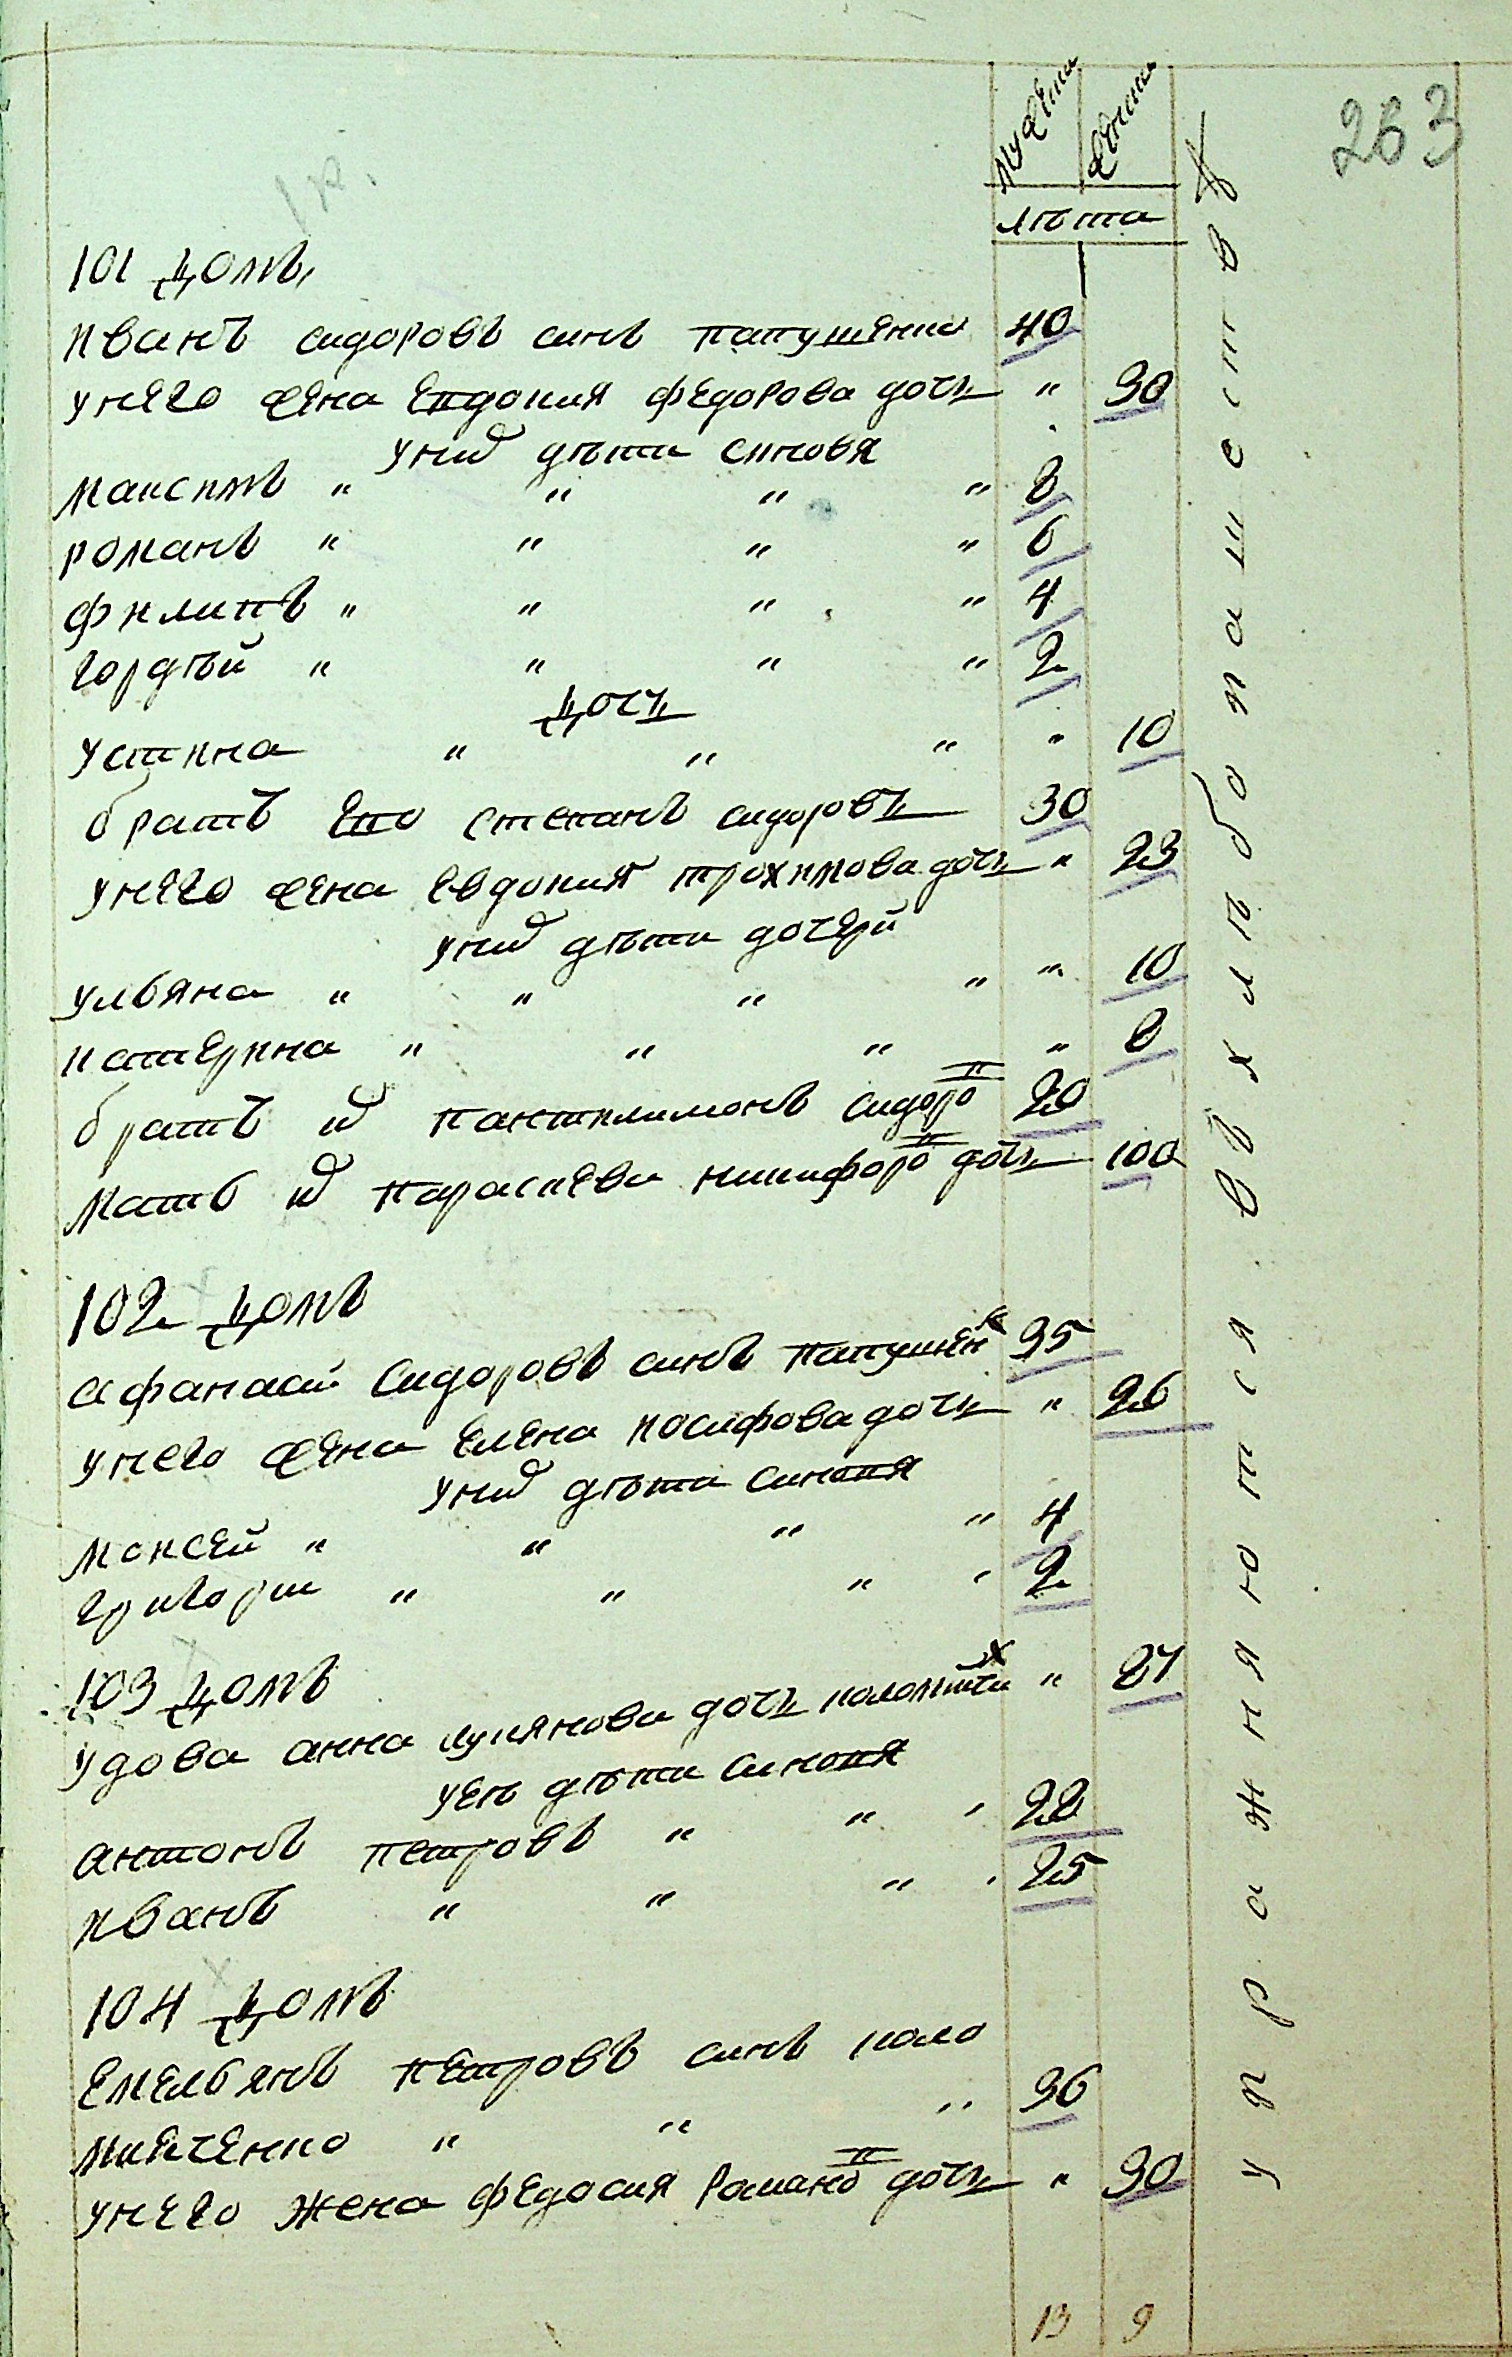 263
мужеска женска
лѣта
101 домъ
иванъ сидоровъ синъ папушенко 40
унего жена Евдокия федорова дочъ " 30
уних дѣти синовя
максимъ " " " " 8
романъ " " " " 6
филипъ " " " " 4
гордѣй " " " " 2
дочъ
устина " " " " 10
братъ Его степанъ сидоровъ 30
унего жена Евдокия трохимова дочъ " 23
уних дѣти дочерй
ульяна " " " " " 10
катерина " " " " 8
братъ их пантилимонъ сидоров 20
мать их параскева никифоров дочъ 100
102 домъ
афанасий сидоровъ синъ папушенк 35
унего жена Елена иосифова дочъ " 26
уних дѣти синовя
моисей " " " " 4
григорий " " " " 2
103 домъ
удова анна лукянова дочъ " 87
уеѣ дѣти синовя
антонъ петровъ " " " 28
иванъ " " " " 25
104 домъ
Емельянъ петровъ синъ коло
мийченко " " " 36
унего жена федосия романов дочъ " 30
13 9
упражняются въ хлѣбопашествѣ